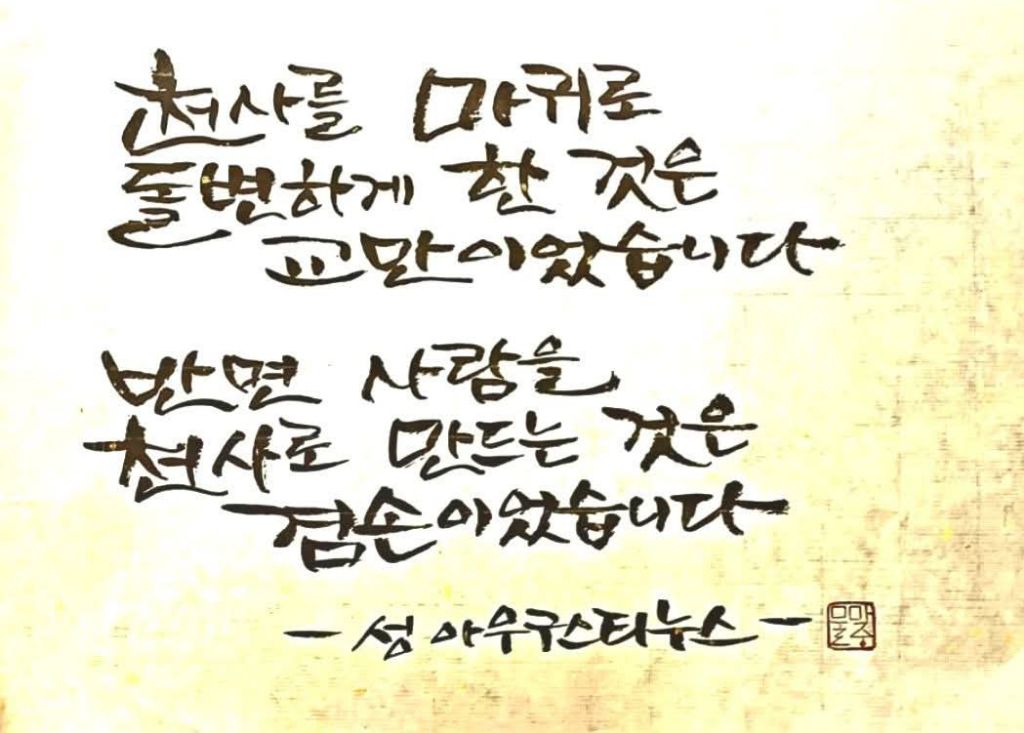 천사를 마귀로
돌변하게 한 것은
교만이었습니다
반면 사람을
천사로 만드는 것은
겸손이었습니다
- 성 아우구스티누스 -